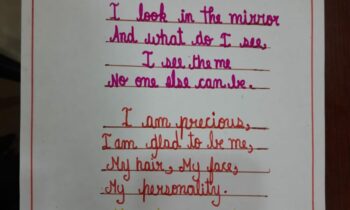 I look in the mirror
And what do I see,
I see the me
No one else can be.
I am precious,
I am glad to be me,
My hair, My face,
My personality.